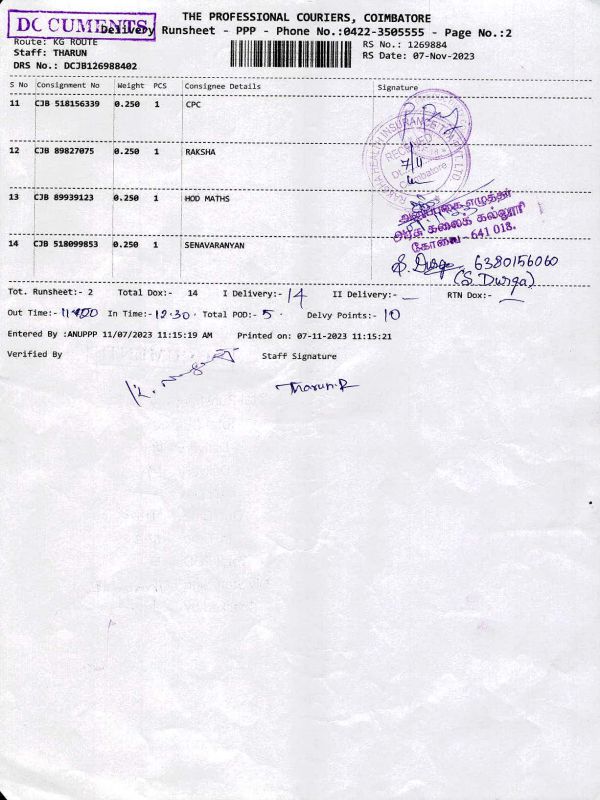 THE PROFESSIONAL COURIERS, COIMBATORE
DOCUMENTS
Delivery Runsheet - PPP - Phone No.:0422-3505555 - Page No.:2
Route: KG ROUTE
RS No.: 1269884
Staff: THARUN
RS Date: 07-Nov-2023
DRS No.: DCJB126988402
S No Consignment No Weight PCS Consignee Details Signature
11 CJB 518156339 0.250 1 CPC
12 CJB 89827075 0.250 1 RAKSHA
RECEIVED
Coimbatore
7/11
13 CJB 89939123 0.250 1 HOD MATHS
அரசு கலைக் கல்லூரி
கோவை - 641 018.
14 CJB 518099853 0.250 1 SENAVARANYAN
S. Durga 6380156060
(S. Durga)
Tot. Runsheet:- 2 Total Dox:- 14 I Delivery:- 14 II Delivery:- — RTN Dox:- —
Out Time:- 11:00 In Time:- 12.30 Total POD:- 5 Delvy Points:- 10
Entered By :ANUPPP 11/07/2023 11:15:19 AM Printed on: 07-11-2023 11:15:21
Verified By Staff Signature
Tharun.R